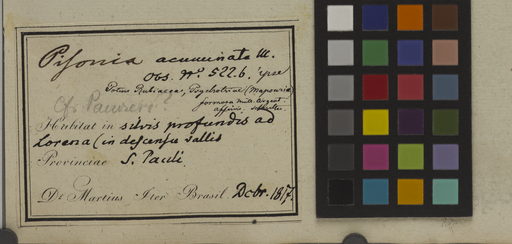 Pisonia acuminata M.
Obs. No. 522.b, ipse
Potius Rubiacea, Psychotriae (Mapouria)
formosa Müll. Argov.
affinis.
Cfr Panureri?
Habitat in silvis profundis ad
Lorena (in descensu vallis
Provinciae S. Pauli
Dr. Martius Iter Brasil. Dcbr. 1817.